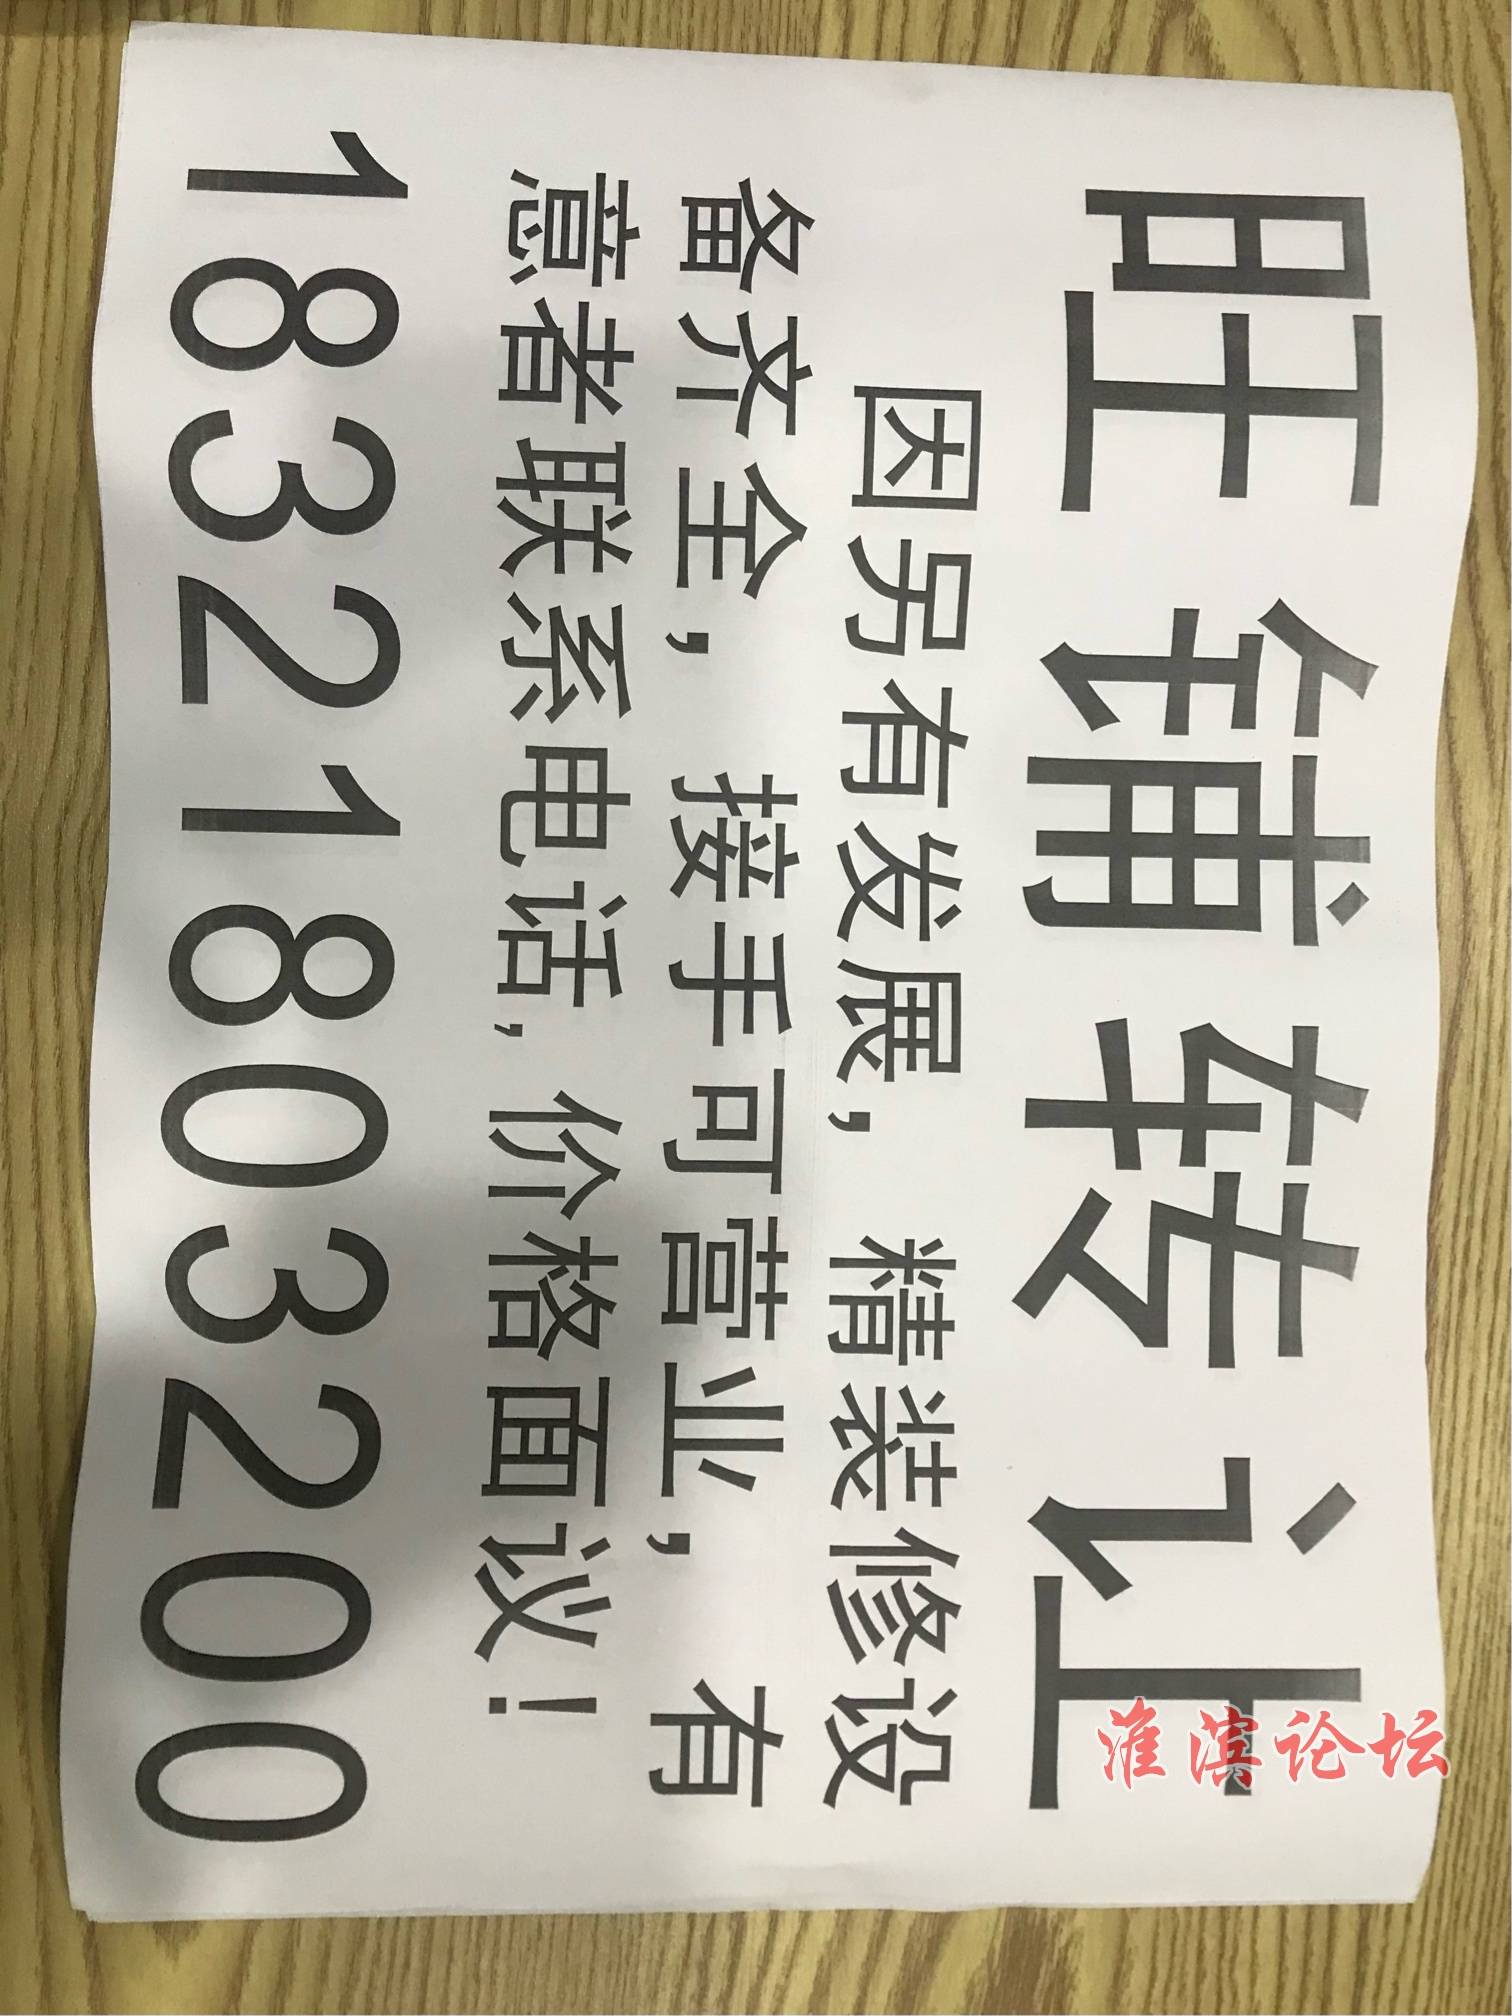 旺铺转让
因另有发展，精装修设
备齐全，接手可营业，有
意者联系电话，价格面议！
18321803200
淮滨论坛